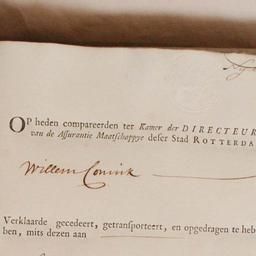 OP heden compareerden ter Kamer der DIRECTEUR
van de Assurantie Maatschappye deser Stad ROTTERDA
Willem Conink
Verklaarde gecedeert, getransporteert, en opgedragen te heb
ben, mits dezen aan